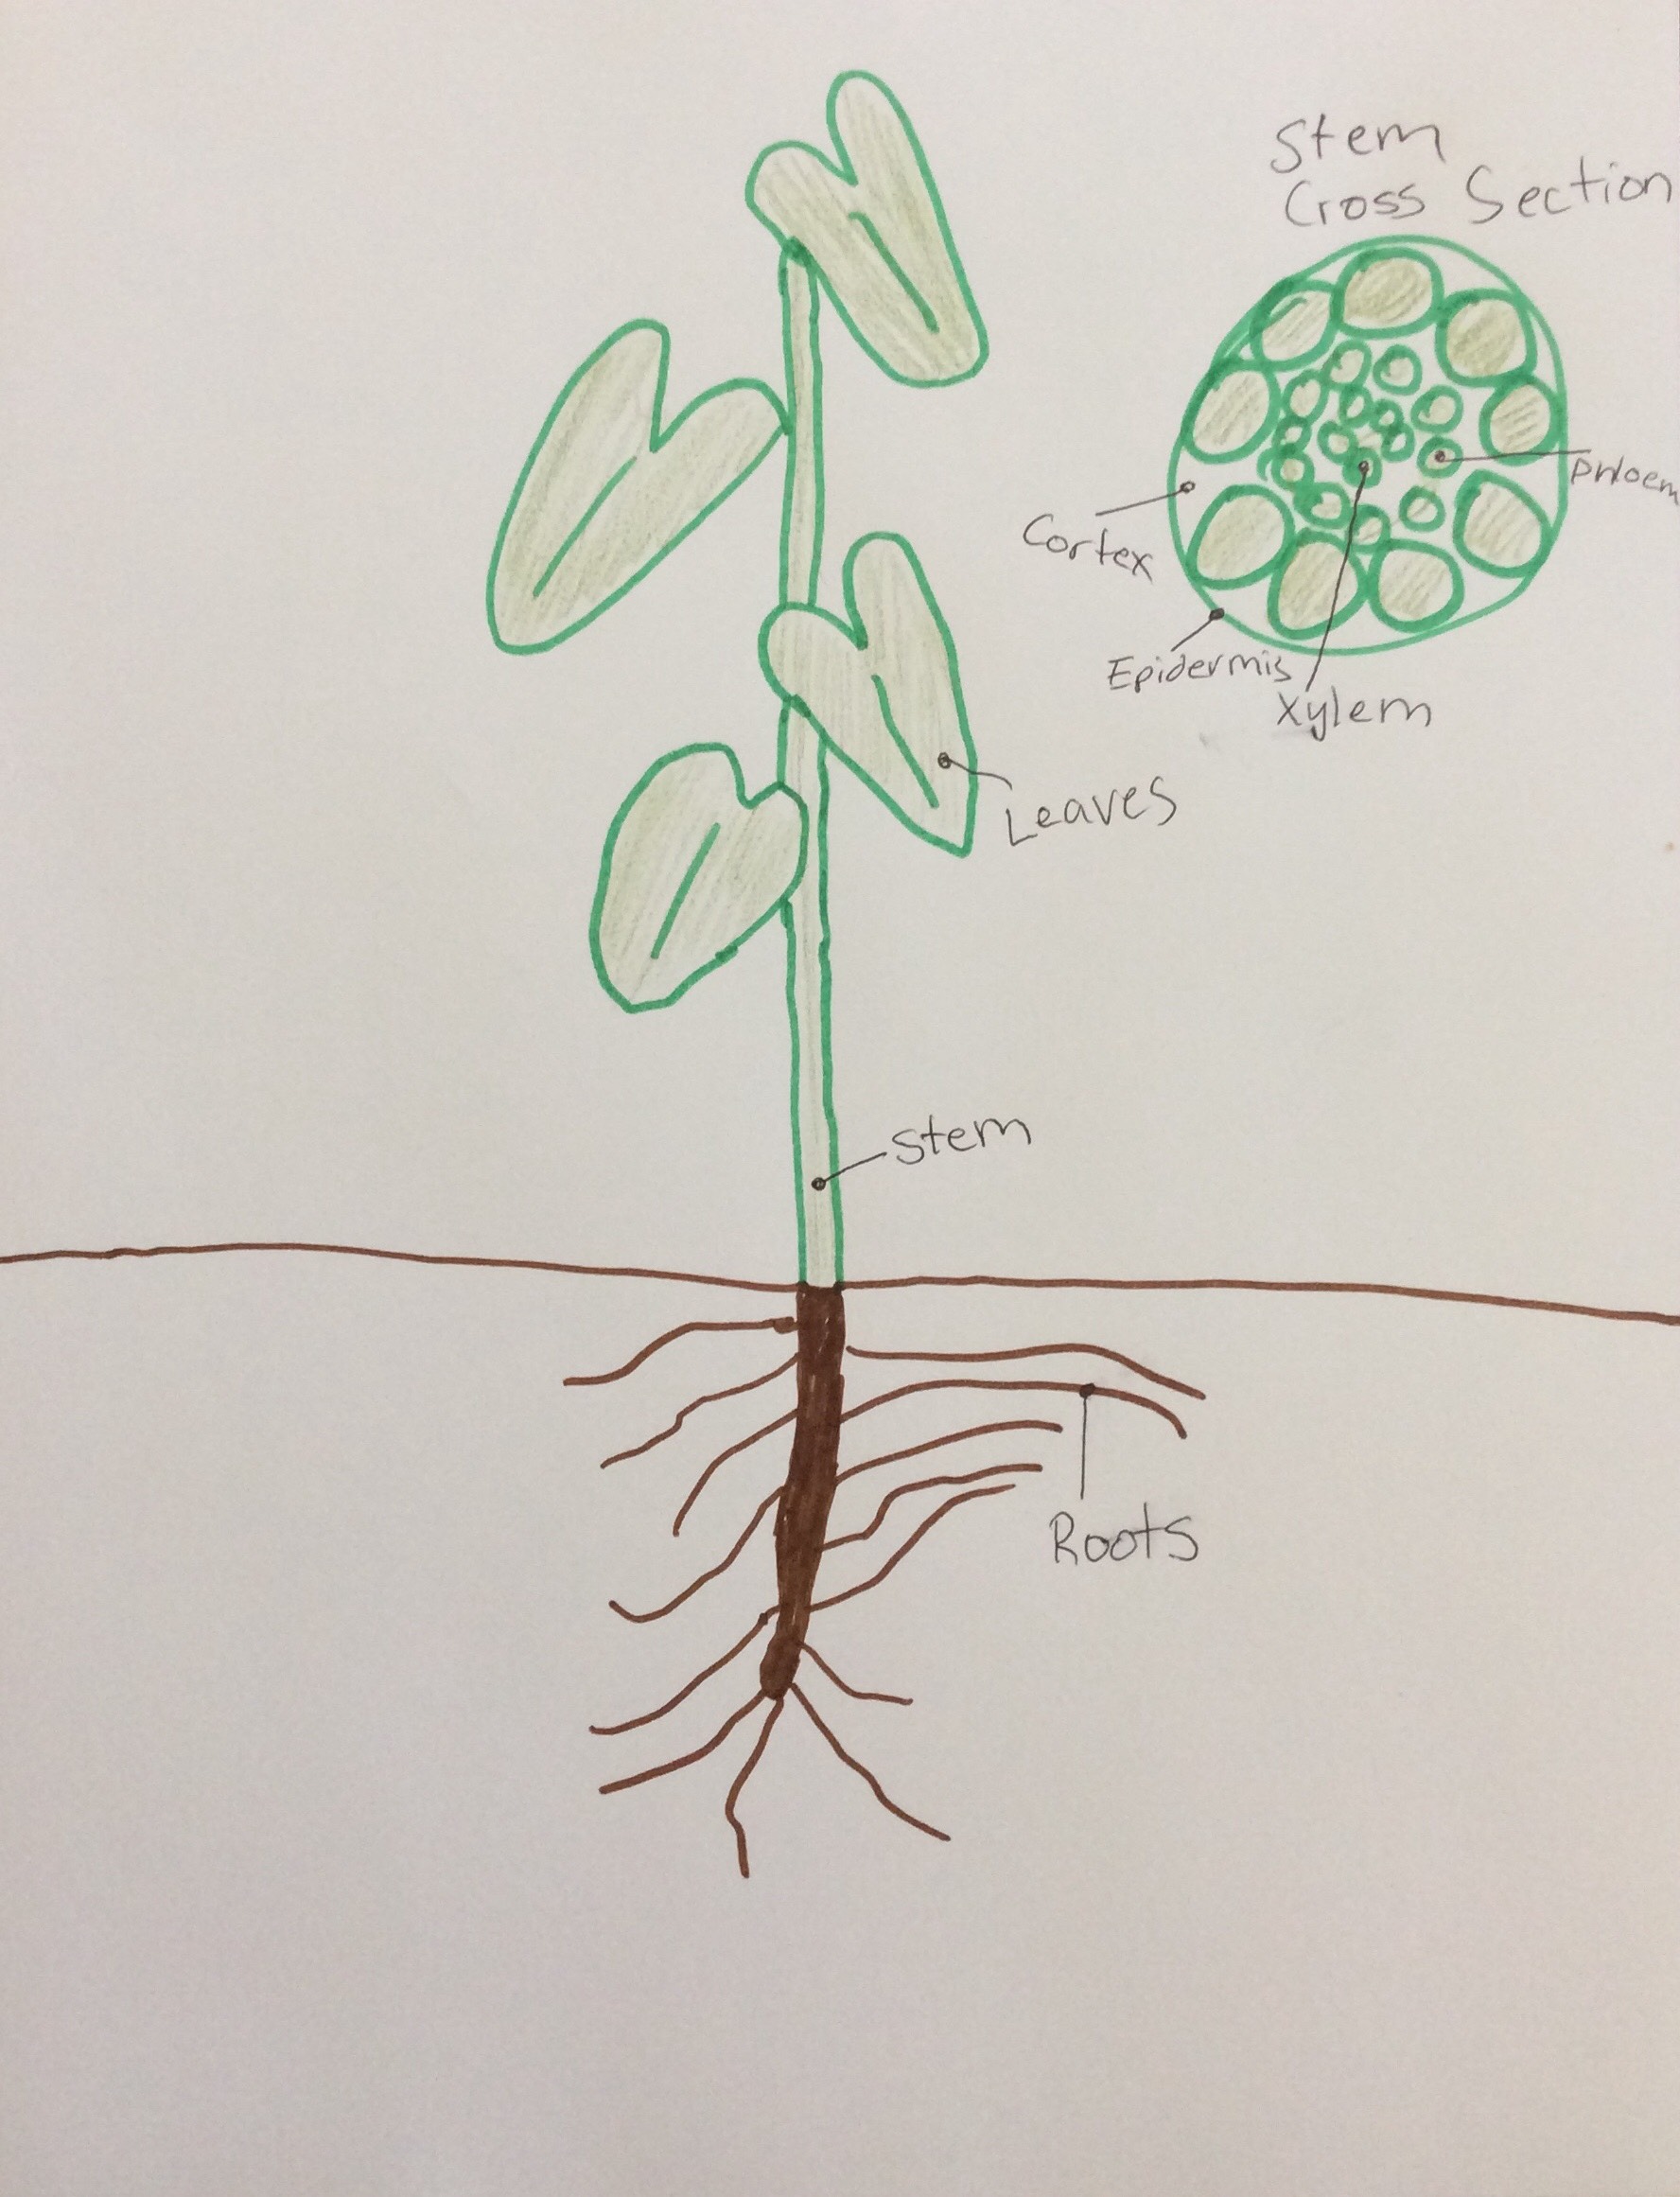 Stem
Cross Section
Phloem
Cortex
Epidermis
Xylem
Leaves
Stem
Roots